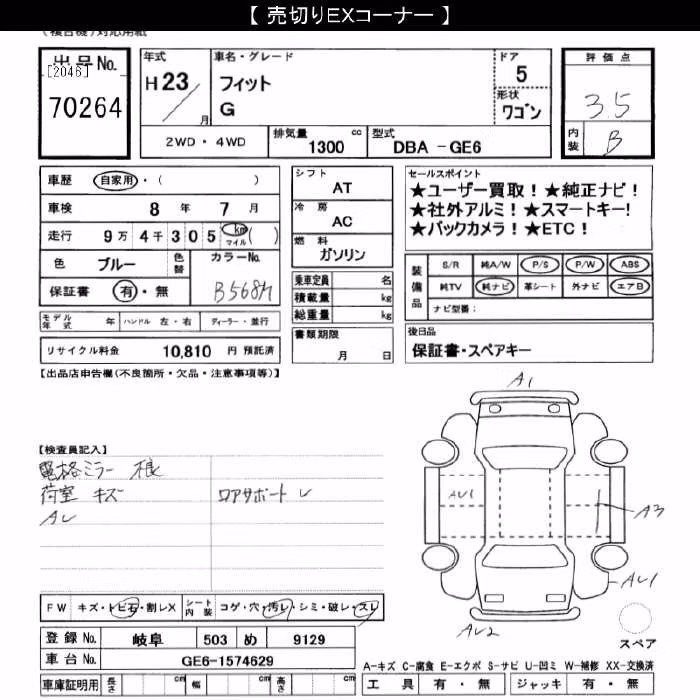 【 売切りEXコーナー 】
(複合機)対応用紙
出品No. [2046] 70264
年式 H23/ 月
車名・グレード フィット G
ドア 5
形状 ワゴン
評価点 3.5
内装 B
2WD・4WD 排気量 1300 cc 型式 DBA-GE6
車歴 自家用・( )
車検 8年 7月
走行 9万4千305 km マイル ( )
色 ブルー 色替 カラーNo. B568M
保証書 有・無
モデル年式 年 ハンドル 左・右 ディーラー・並行
リサイクル料金 10,810 円 預託済
シフト AT
冷房 AC
燃料 ガソリン
乗車定員 名
積載量 kg
総重量 kg
書類期限 月 日
セールスポイント
★ユーザー買取!★純正ナビ!
★社外アルミ!★スマートキー!
★バックカメラ!★ETC!
装備品 S/R 純A/W P/S P/W ABS
純TV 純ナビ 革シート 外ナビ エアB
ナビ型番:
後日品
保証書・スペアキー
【出品店申告欄(不良箇所・欠品・注意事項等)】
A1
【検査員記入】
電格ミラー 根
荷室 キズ ロアサポート レ
AU1
A3
AU1
AU2
スペア
FW キズ・トビ石・割レX シート内装 コゲ・穴・汚レ・シミ・破レ・スレ
登録No. 岐阜 503 め 9129
車台No. GE6-1574629
A-キズ C-腐食 E-エクボ S-サビ U-凹ミ W-補修 XX-交換済
車庫証明用 長さ cm 幅 cm 高さ cm
工具 有・無 ジャッキ 有・無